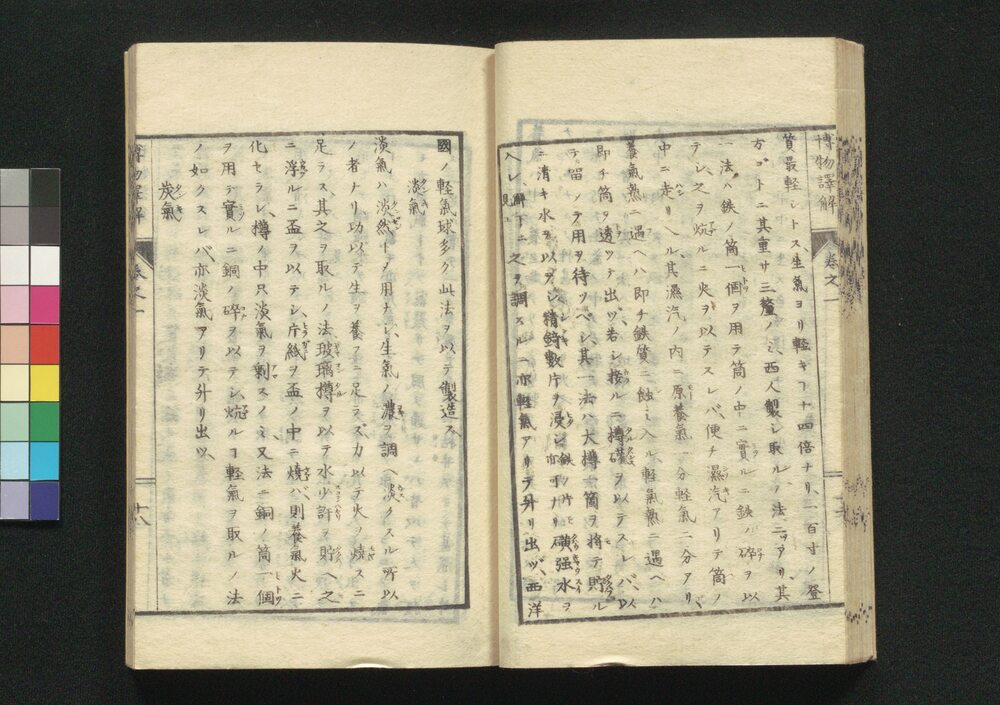 博物譯解 巻之一
質最軽シトス、生氣ヨリ軽キコ十四倍ナリ、一百寸ノ登
方ゴトニ其重サ三釐ノミ、西人製シ取ルノ法二ツアリ、其
一法ハ鉄ノ筒一個ヲ用テ筒ノ中ニ實ルニ鉄ノ碎ヲ以
テシ、之ヲ焼ルニ火ヲ以テスレバ、便チ濕汽アリテ筒ノ
中ニ走リ入ル、其濕汽ノ内ニ原養氣一分軽氣二分アリ、
養氣熱ニ遇ヘハ即チ鉄質ニ蝕ミ入ル軽氣熱ニ遇ヘハ
即チ筒ヲ透ツテ出ヅ、若シ接ルニ樽礶ヲ以テスレバ、以
テ留メテ用ヲ待ツベシ、其一法ハ大樽一箇ヲ将テ貯ル
ニ清キ水ヲ以テシ、精錡數片ヲ浸シ鉄ノ片モ亦可ナリ磺强水ヲ
入レ、解下ニ見ユ之ヲ調スルニ亦軽氣アリテ升リ出ヅ、西洋
國ノ軽氣球多ク此法ヲ以テ製造ス、
淡氣
淡氣ハ淡然トメ用ナシ、生氣ノ濃ヲ調ヘ淡クスル所以
ノ者ナリ、功以テ生ヲ養フニ足ラズ力以テ火ノ燒スニ
足ラス、其之ヲ取ルノ法玻璃樽ヲ以テ水少許ヲ貯ヘ之
ニ浮ルニ盃ヲ以テシ、片紙ヲ盃ノ中ニ燒ハ、則養氣火ニ
化セラレ、樽ノ中只淡氣ヲ剰スノミ、又法ニ銅ノ筒一個
ヲ用テ實ルニ銅ノ碎ヲ以テシ、焼ルコ軽氣ヲ取ルノ法
ノ如クスレバ、亦淡氣アリテ升リ出ツ、
炭氣